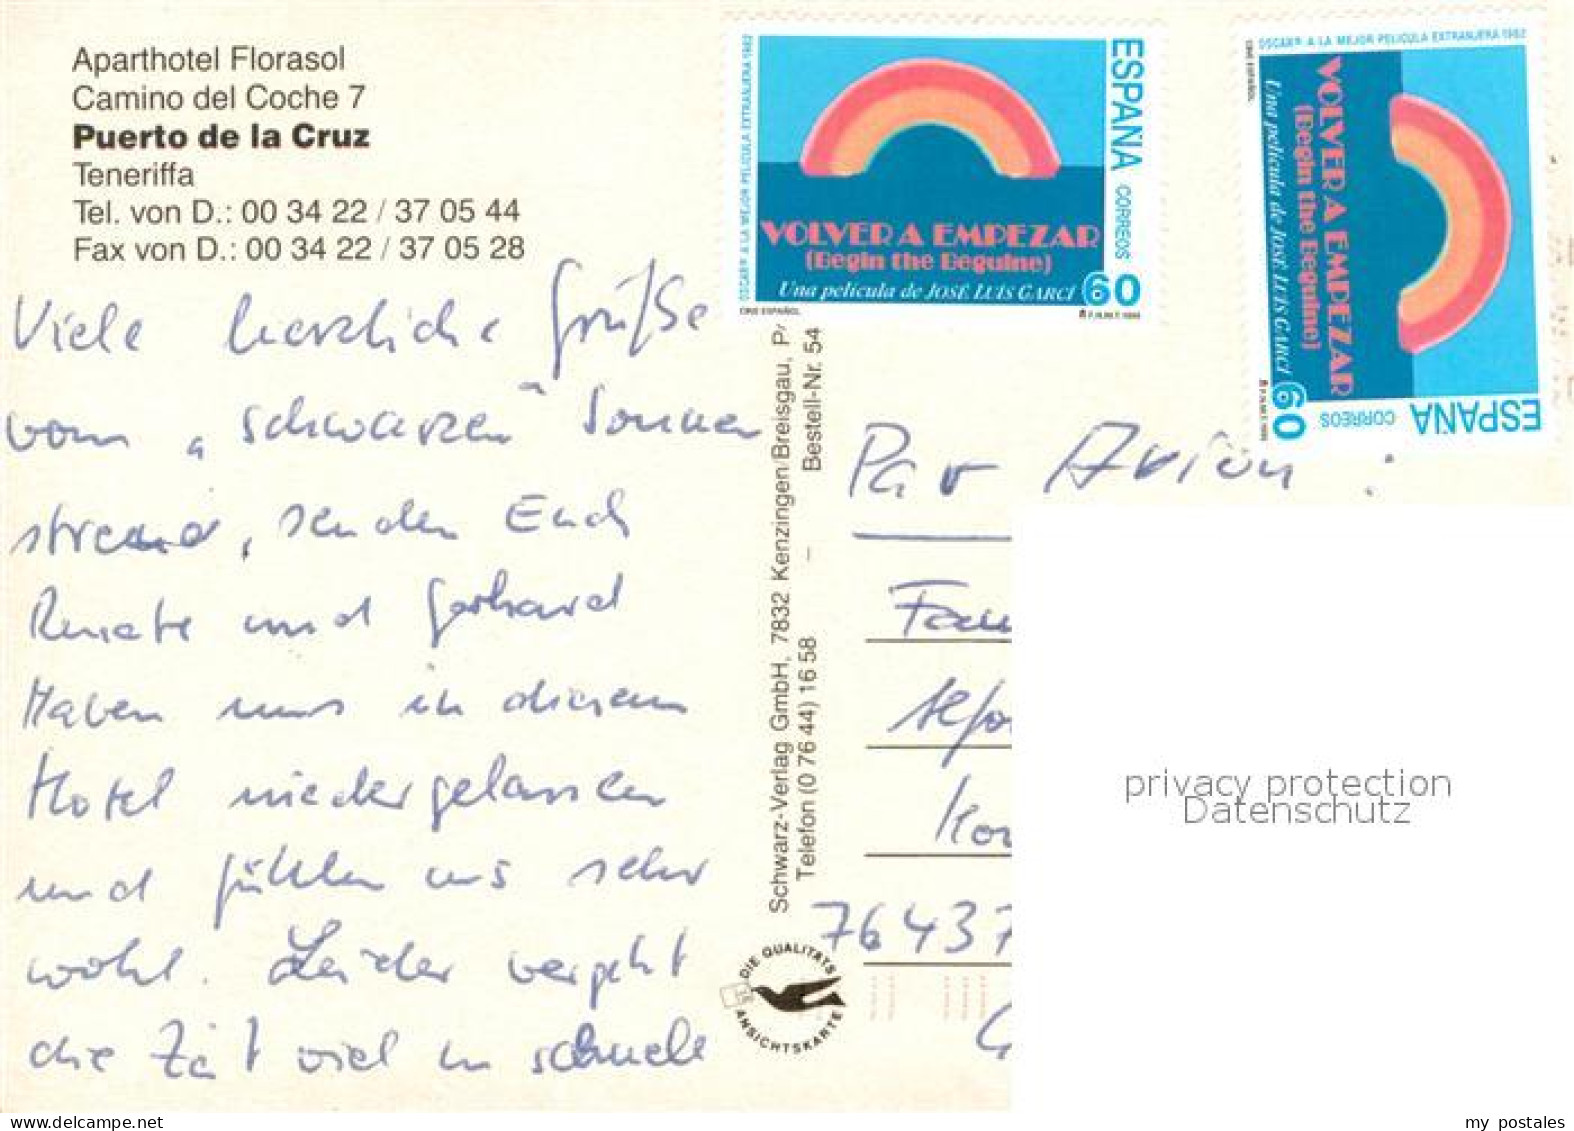 Aparthotel Florasol
Camino del Coche 7
Puerto de la Cruz
Teneriffa
Tel. von D.: 00 34 22 / 37 05 44
Fax von D.: 00 34 22 / 37 05 28
Viele herzliche Grüße
vom "schwarzen" Sonnen
strand, senden Euch
Renate und Gerhard
Haben uns in diesem
Hotel niedergelassen
und fühlen uns sehr
wohl. Leider vergeht
die Zeit viel zu schnell
OSCAR® A LA MEJOR PELICULA EXTRANJERA 1982
ESPAÑA
CORREOS
60
VOLVER A EMPEZAR
(Begin the Beguine)
Una película de JOSÉ LUIS GARCÍ
CINE ESPAÑOL
OSCAR® A LA MEJOR PELICULA EXTRANJERA 1982
ESPAÑA
CORREOS
60
VOLVER A EMPEZAR
(Begin the Beguine)
Una película de JOSÉ LUIS GARCÍ
CINE ESPAÑOL
Schwarz-Verlag GmbH, 7832 Kenzingen/Breisgau,
Telefon (0 76 44) 16 58 – Bestell-Nr. 54
DIE QUALITÄTS
ANSICHTSKARTE
Par Avion:
Fam
76437
privacy protection
Datenschutz
my postales